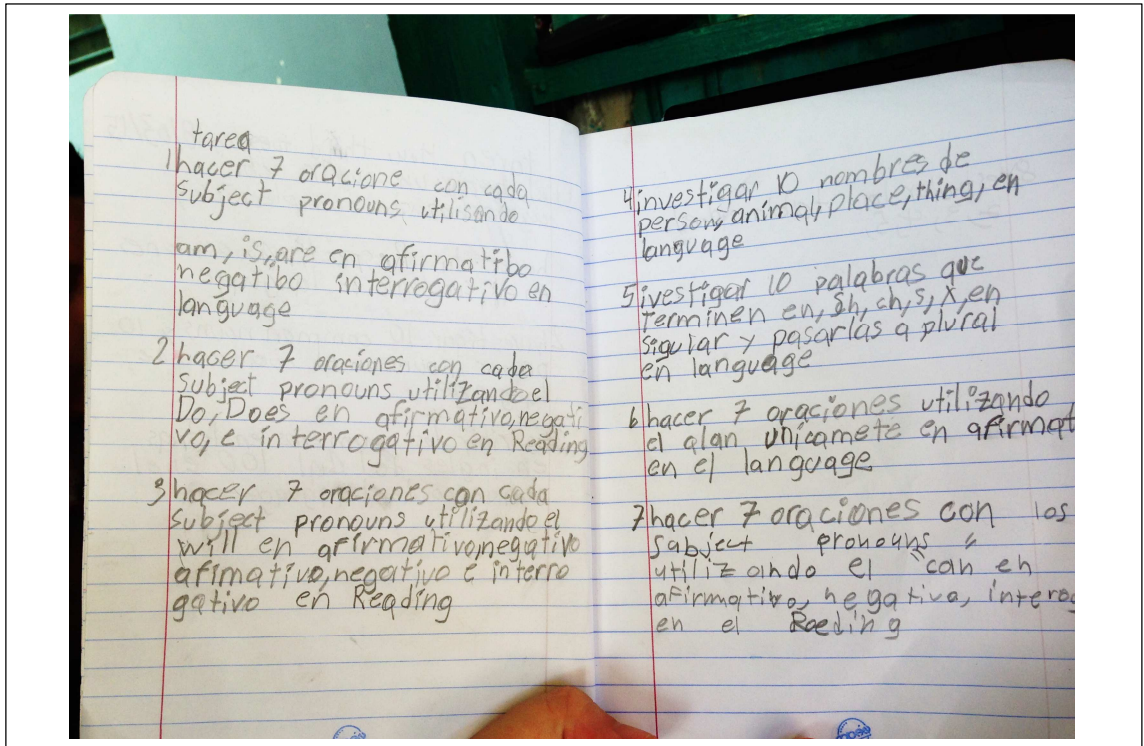 tarea
1 hacer 7 oracione con cada
subject pronouns utilisando
am, is, are en afirmatibo
negatibo interrogativo en
language
2 hacer 7 oraciones con cada
subject pronouns utilizando el
Do, Does en afirmativo, negati
vo, e interrogativo en Reading
3 hacer 7 oraciones con cada
subject pronouns utilizando el
will en afirmativo, negativo
afimativo, negativo e interro
gativo en Reading
4 investigar 10 nombres de
person, animal, place, thing, en
language
5 ivestigar 10 palabras que
terminen en, sh, ch, s, x, en
sigular y pasarlas a plural
en language
6 hacer 7 oraciones utilizando
el alan unicamete en afirmat
en el language
7 hacer 7 oraciones con los
subject pronouns "
utilizando el "can en
afirmativo, negativa, interog
en el Roeding